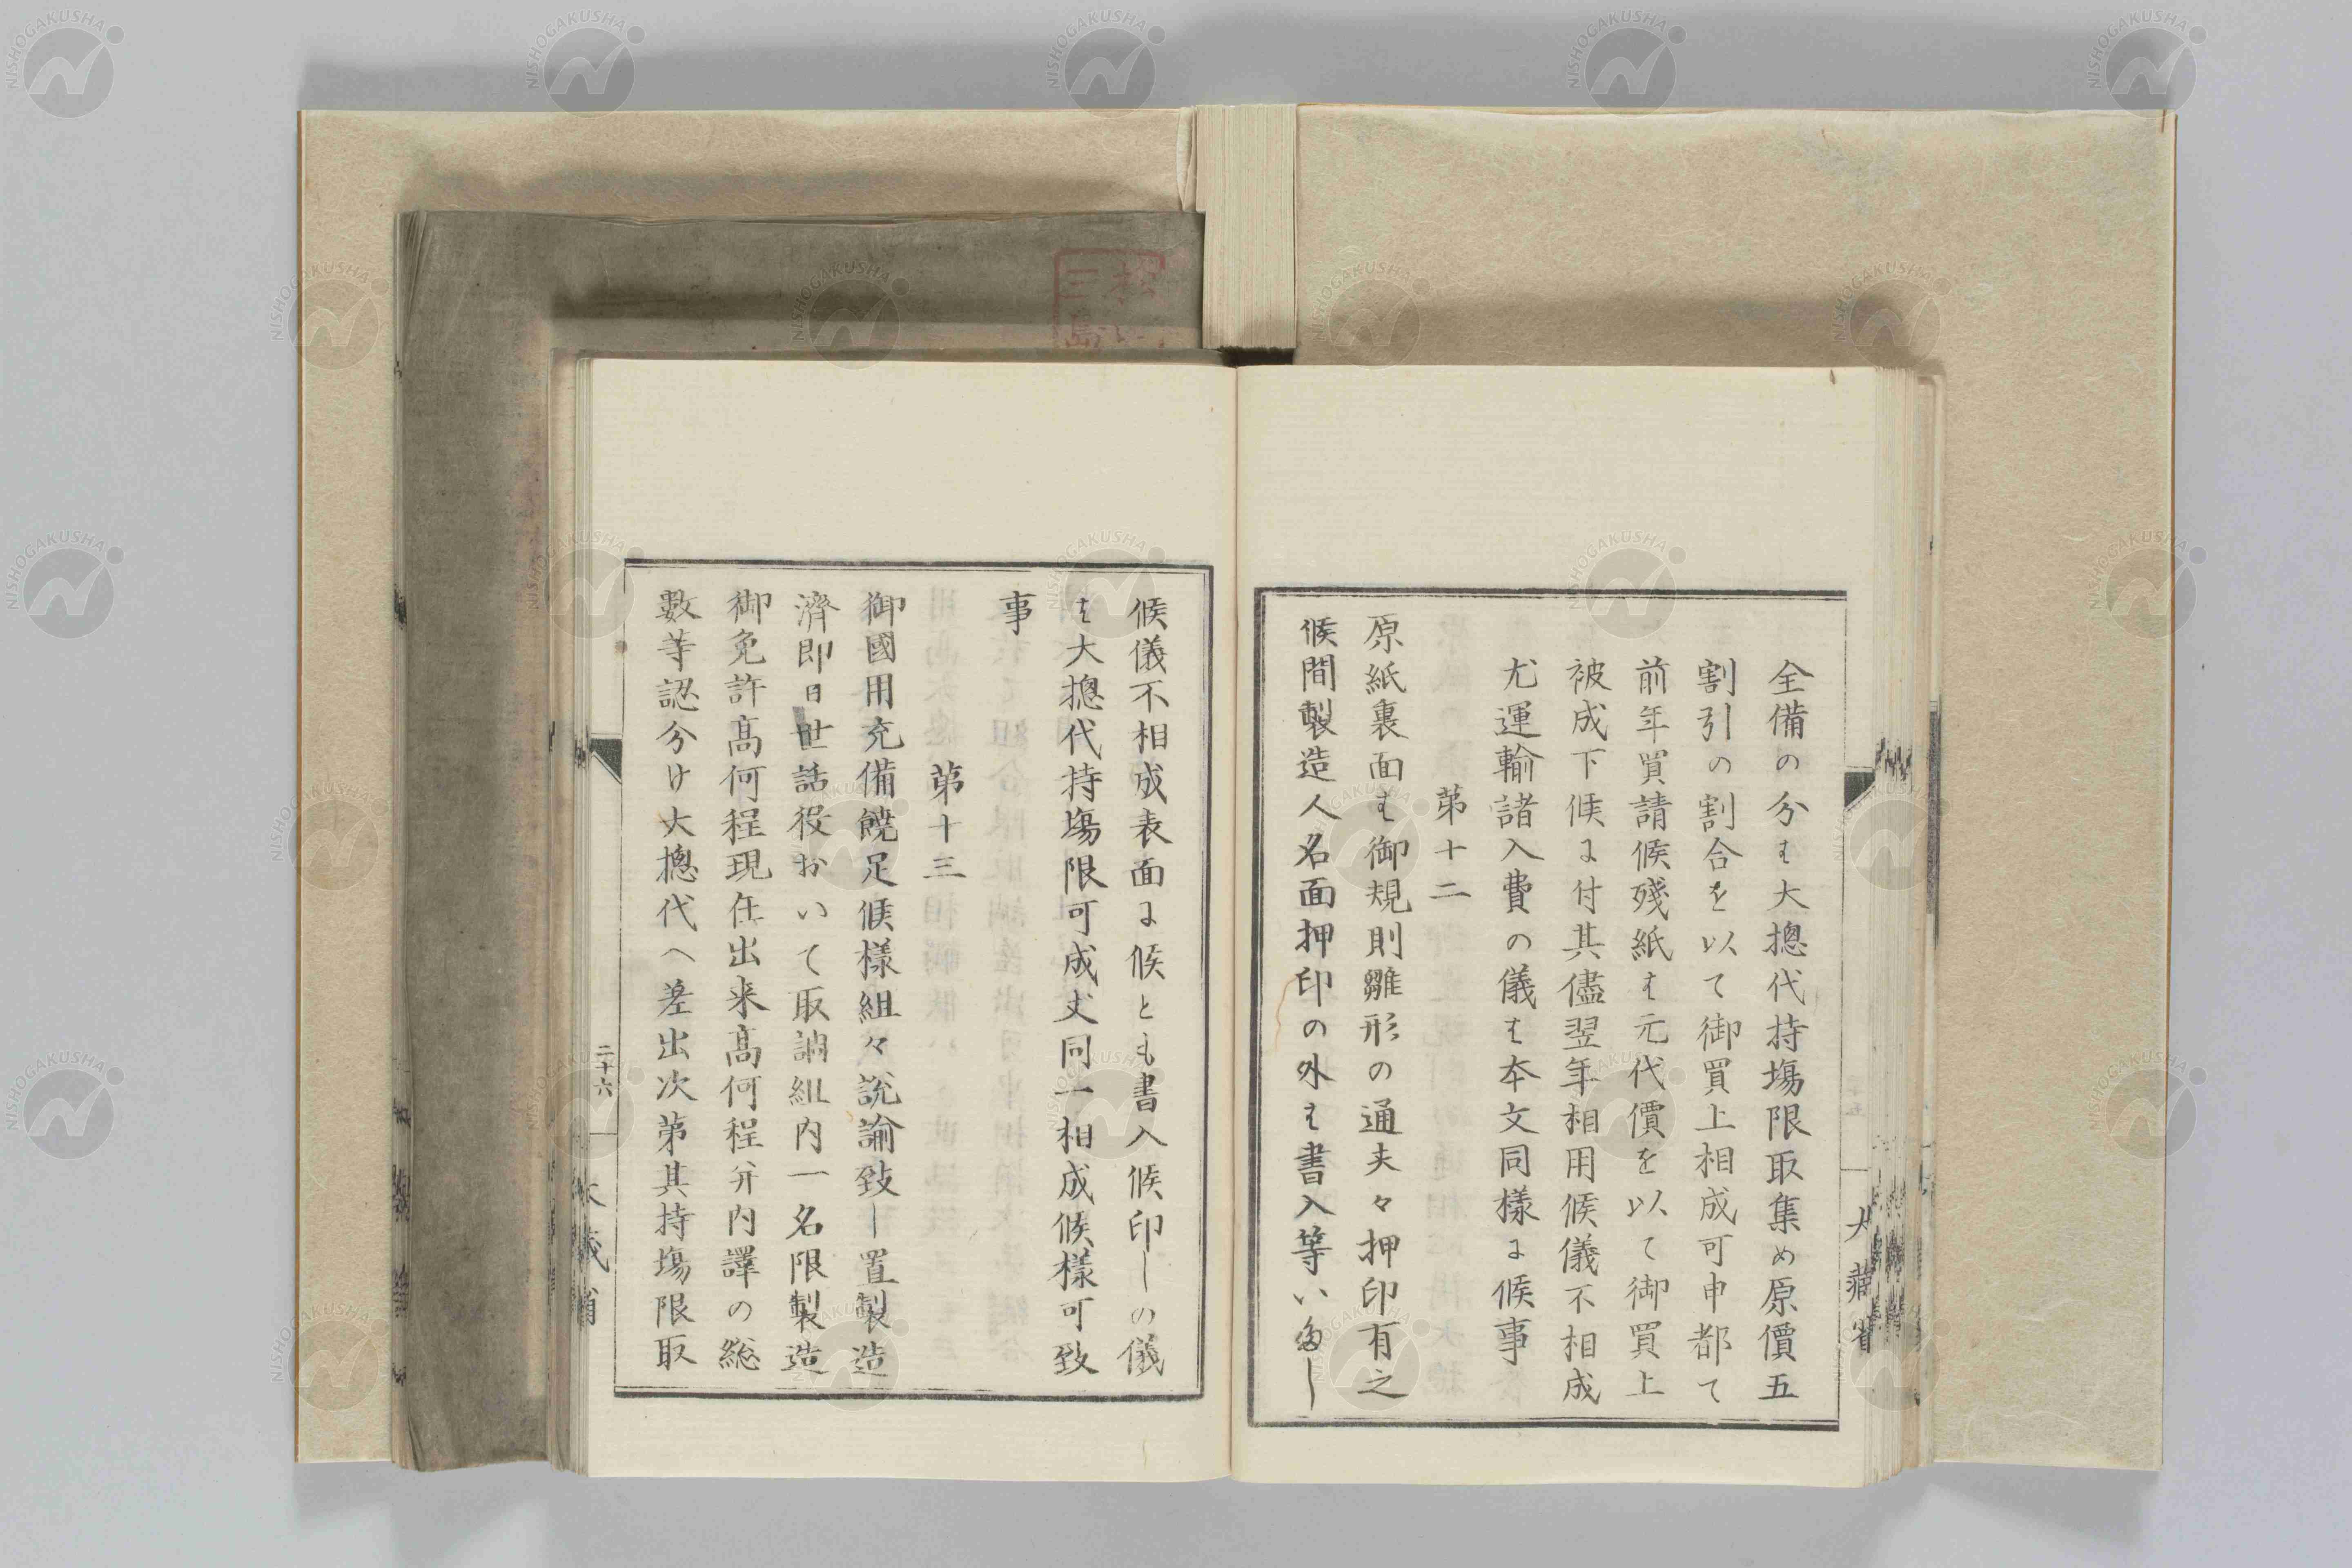 全備の分は大摠代持塲限取集め原價五
割引の割合を以て御買上相成可申都て
前年買請候殘紙は元代價を以て御買上
被成下候に付其儘翌年相用候儀不相成
尤運輸諸入費の儀は本文同樣に候事
第十二
原紙裏面は御規則雛形の通夫々押印有之
候間製造人名面押印の外は書入等いたし
大藏省
候儀不相成表面に候とも書入候印しの儀
は大摠代持塲限可成丈同一相成候樣可致
事
第十三
御國用充備饒足候樣組々説諭致し置製造
濟即日世話役おいて取調組内一名限製造
御免許高何程現在出来高何程并内譯の総
數等認分け大摠代へ差出次第其持塲限取
二十六
大藏省
松
三
島
NISHOGAKUSHA